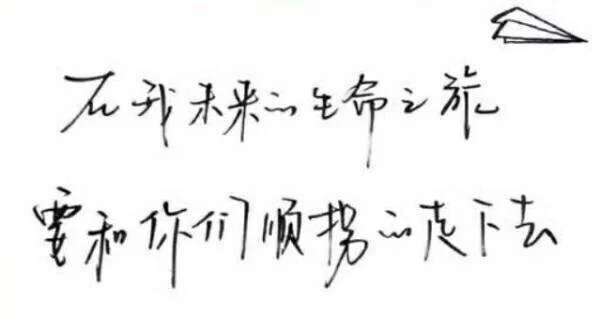 在我未来的生命之旅
要和你们顺拐的走下去